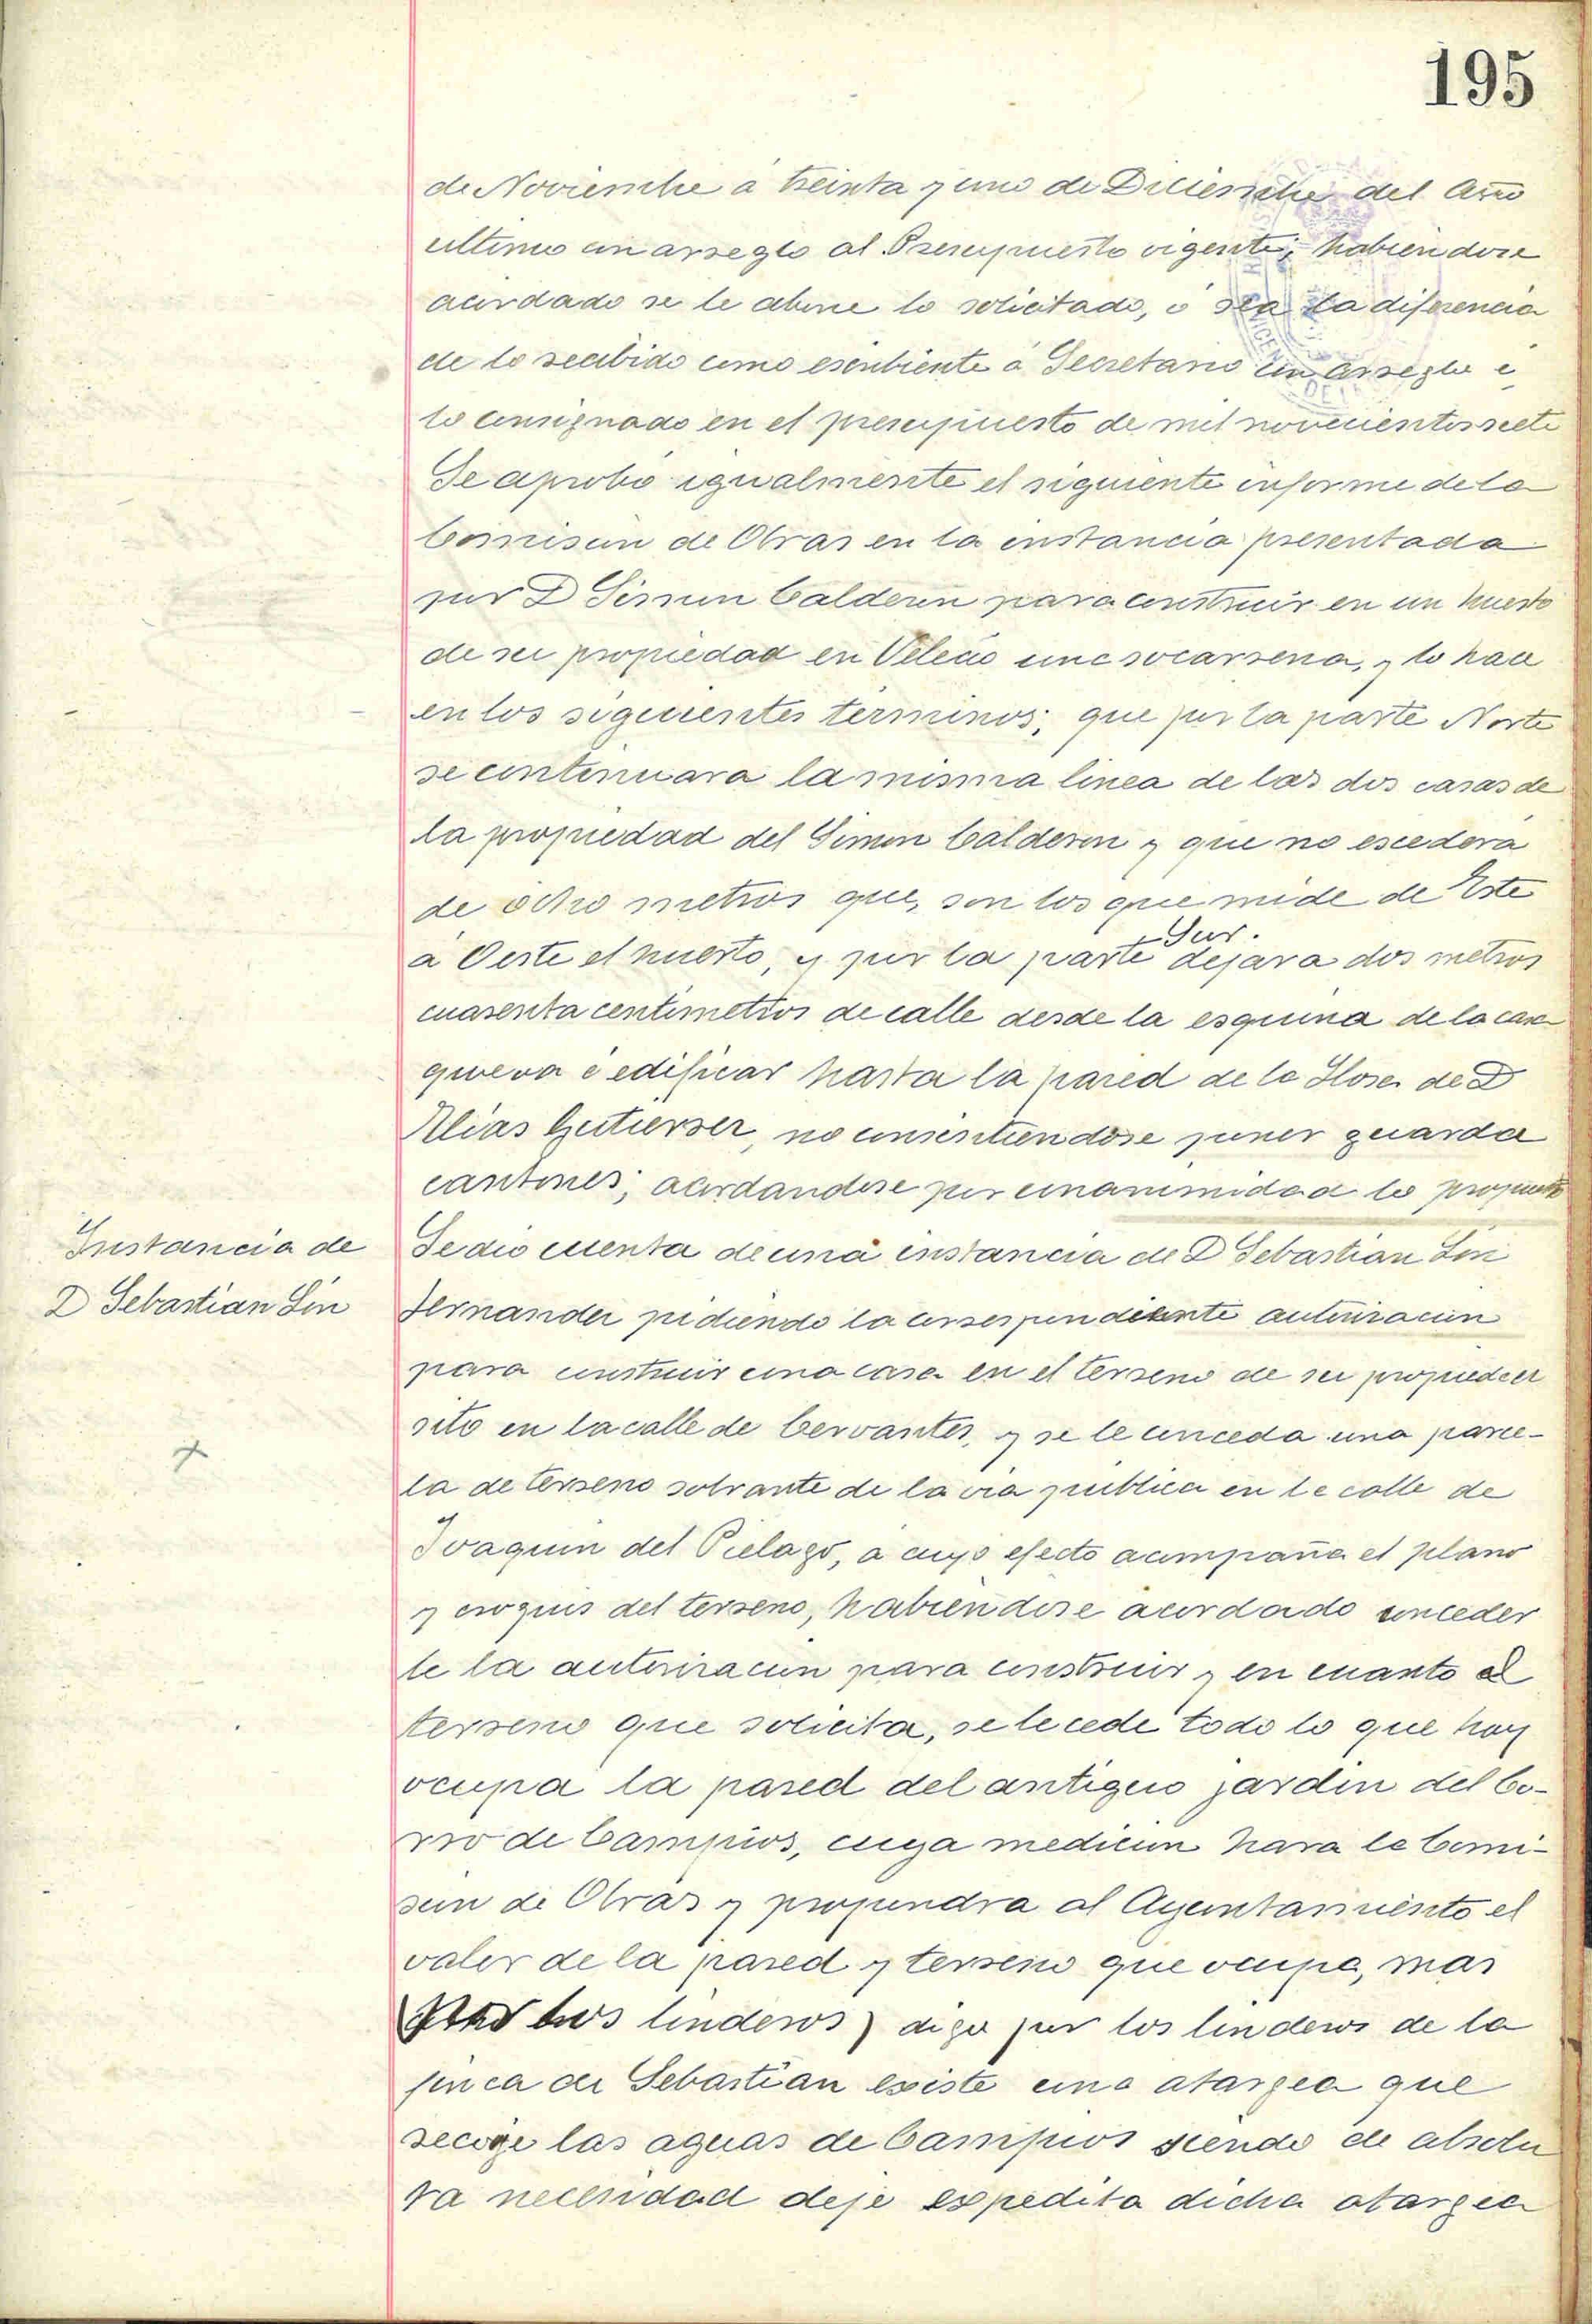 195
de Noviembre á treinta y uno de Diciembre del Año
ultimo con arreglo al Presupuesto vigente; habiendose
acordado se le abone lo solicitado, ó sea la diferencia
de lo recibido como escribiente á Secretario con arreglo á
lo consignado en el presupuesto de mil novecientos siete
Se aprobó igualmente el siguiente informe de la
Comision de Obras en la instancia presentada
por D Simon Calderon para construir en un huerto
de su propiedad en Velecio una socarrena, y lo hace
en los siguientes terminos; que por la parte Norte
se continuara la misma linea de las dos casas de
la propiedad del Simon Calderon y que no escedera
de ocho metros que, son los que mide de Este
á Oeste el huerto, y por la parte Sur. dejara dos metros
cuarenta centimetros de calle desde la esquina de la casa
que va á edificar hasta la pared de la Llosa de D
Elias Gutierrez, no consentiendose poner guarda
cantones; acordandose por unanimidad lo propuesto
Instancia de
D Sebastian Lin
Se dio cuenta de una instancia de D Sebastian Lin
Fernandez pidiendo la correspondiente autorizacion
para construir una casa en el terreno de su propiedad
sito en la calle de Cervantes, y se le conceda una parce-
la de terreno sobrante de la via publica en la calle de
Joaquin del Pielago, a cuyo efecto acompaña el plano
y croquis del terreno, habiendose acordado conceder
le la autorizacion para construir y en cuanto al
terreno que solicita, se le cede todo lo que hoy
ocupa la pared del antiguo jardin del Co-
rro de Campios, cuya medicion hara la Comi-
sion de Obras y propondra al Ayuntamiento el
valor de la pared y terreno que ocupa, mas
los linderos) digo por los linderos de la
finca de Sebastian existe una atargea que
recoge las aguas de Campios siendo de absolu
ta necesidad deje expedita dicha atargea